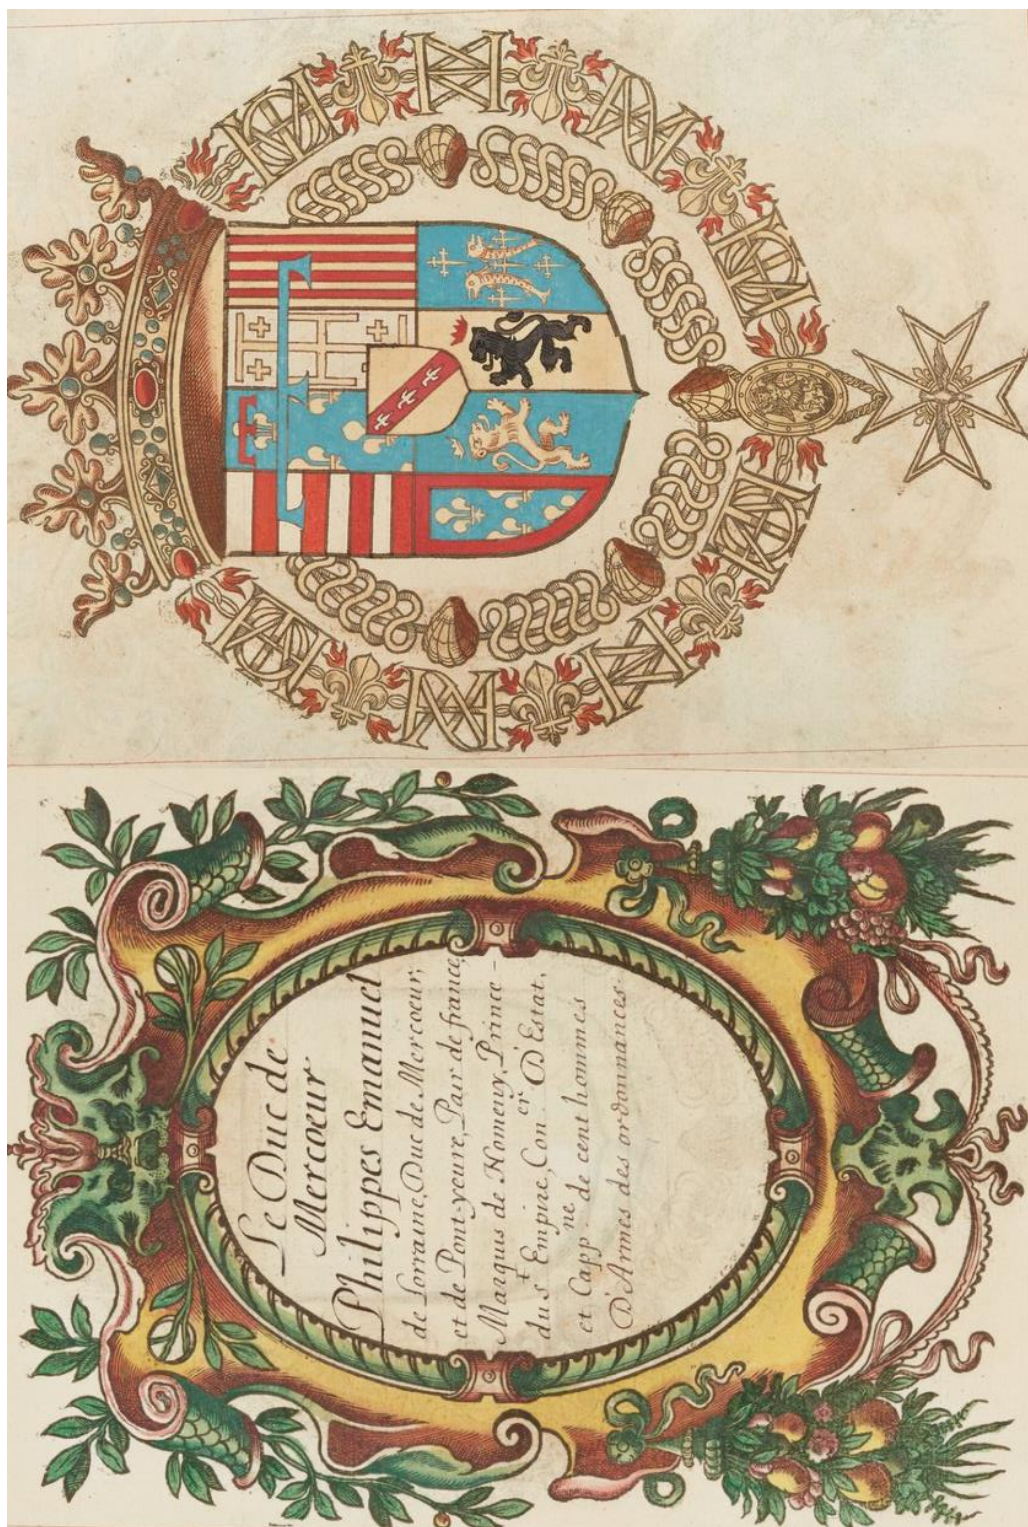 Le Duc de
Mercoeur
Philippes Emanuel
de Lorraine, Duc de Mercoeur,
et de Pont-yeure, Pair de france,
Marquis de Nomeny, Prince-
du St Empire, Coner D'Estat,
et Cappne de cent hommes
D'Armes des ordonnances.